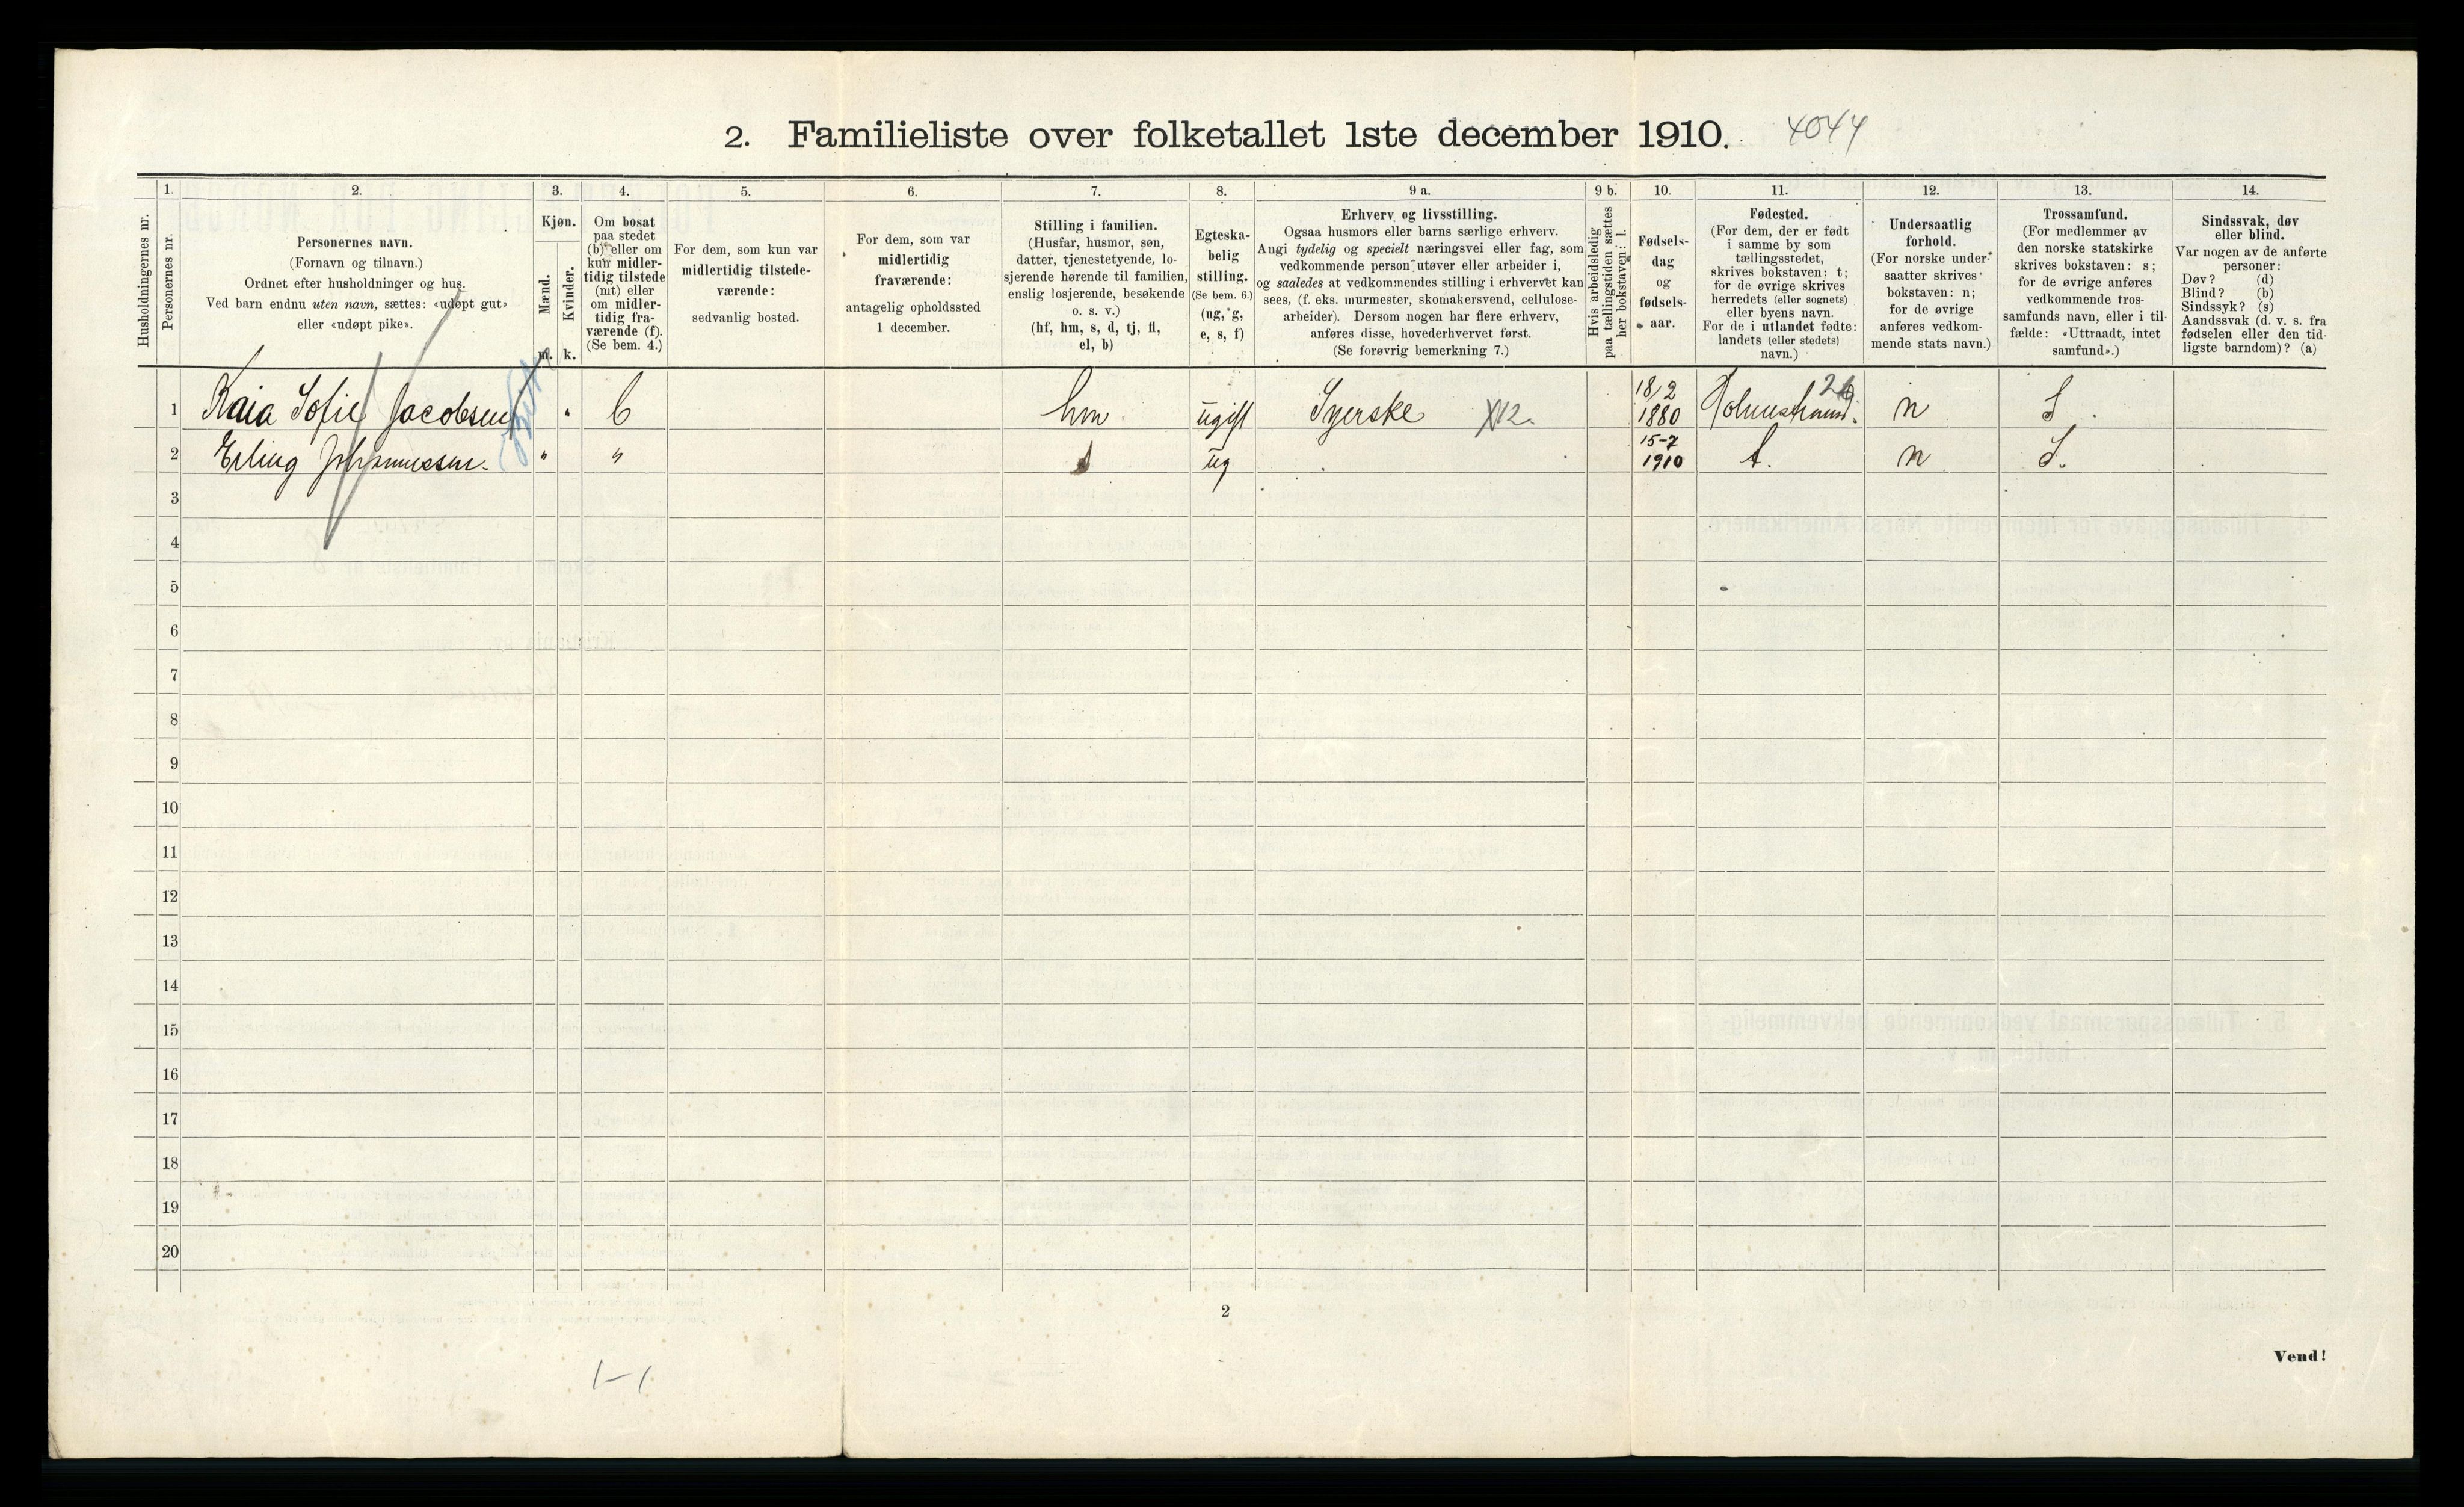 2. Familieliste over folketallet 1ste december 1910. 4044
1. 2. 3. 4. 5. 6. 7. 8. 9 a. 9 b. 10. 11. 12. 13. 14.
Husholdningernes nr.
Personernes nr.
Personernes navn.
(Fornavn og tilnavn.)
Ordnet efter husholdninger og hus.
Ved barn endnu uten navn, sættes: «udøpt gut»
eller «udøpt pike».
Kjøn.
Mænd.
Kvinder.
m. k.
Om bosat
paa stedet
(b) eller om
kun midler-
tidig tilstede
(mt) eller
om midler-
tidig fra-
værende (f).
(Se bem. 4.)
For dem, som kun var
midlertidig tilstede-
værende:
sedvanlig bosted.
For dem, som var
midlertidig
fraværende:
antagelig opholdssted
1 december.
Stilling i familien.
(Husfar, husmor, søn,
datter, tjenestetyende, lo-
sjerende hørende til familien,
enslig losjerende, besøkende
o. s. v.)
(hf, hm, s, d, tj, fl,
el, b)
Egteska-
belig
stilling.
(Se bem. 6.)
(ug, g,
e, s, f)
Erhverv og livsstilling.
Ogsaa husmors eller barns særlige erhverv.
Angi tydelig og specielt næringsvei eller fag, som
vedkommende person utøver eller arbeider i,
og saaledes at vedkommendes stilling i erhvervet kan
sees, (f. eks. murmester, skomakersvend, cellulose-
arbeider). Dersom nogen har flere erhverv,
anføres disse, hovederhvervet først.
(Se forøvrig bemerkning 7.)
Hvis arbeidsledig
paa tællingstiden sættes
her bokstaven: l.
Fødsels-
dag
og
fødsels-
aar.
Fødested.
(For dem, der er født
i samme by som
tællingsstedet,
skrives bokstaven: t;
for de øvrige skrives
herredets (eller sognets)
eller byens navn.
For de i utlandet fødte:
landets (eller stedets)
navn.)
Undersaatlig
forhold.
(For norske under-
saatter skrives
bokstaven: n;
for de øvrige
anføres vedkom-
mende stats navn.)
Trossamfund.
(For medlemmer av
den norske statskirke
skrives bokstaven: s;
for de øvrige anføres
vedkommende tros-
samfunds navn, eller i til-
fælde: «Uttraadt, intet
samfund».)
Sindssvak, døv
eller blind.
Var nogen av de anførte
personer:
Døv? (d)
Blind? (b)
Sindssyk? (s)
Aandssvak (d. v. s. fra
fødselen eller den tid-
ligste barndom)? (a)
1 Kaia Sofie Jacobsen " b hm ugift Syerske X12. 18/2 1880 Holmestrand. n S
2 Erling Johannessen. " " s ug 15-7 1910 t. n S.
3
4
5
6
7
8
9
10
11
12
13
14
15
16
17
18
19
20
2
Vend!
1-1